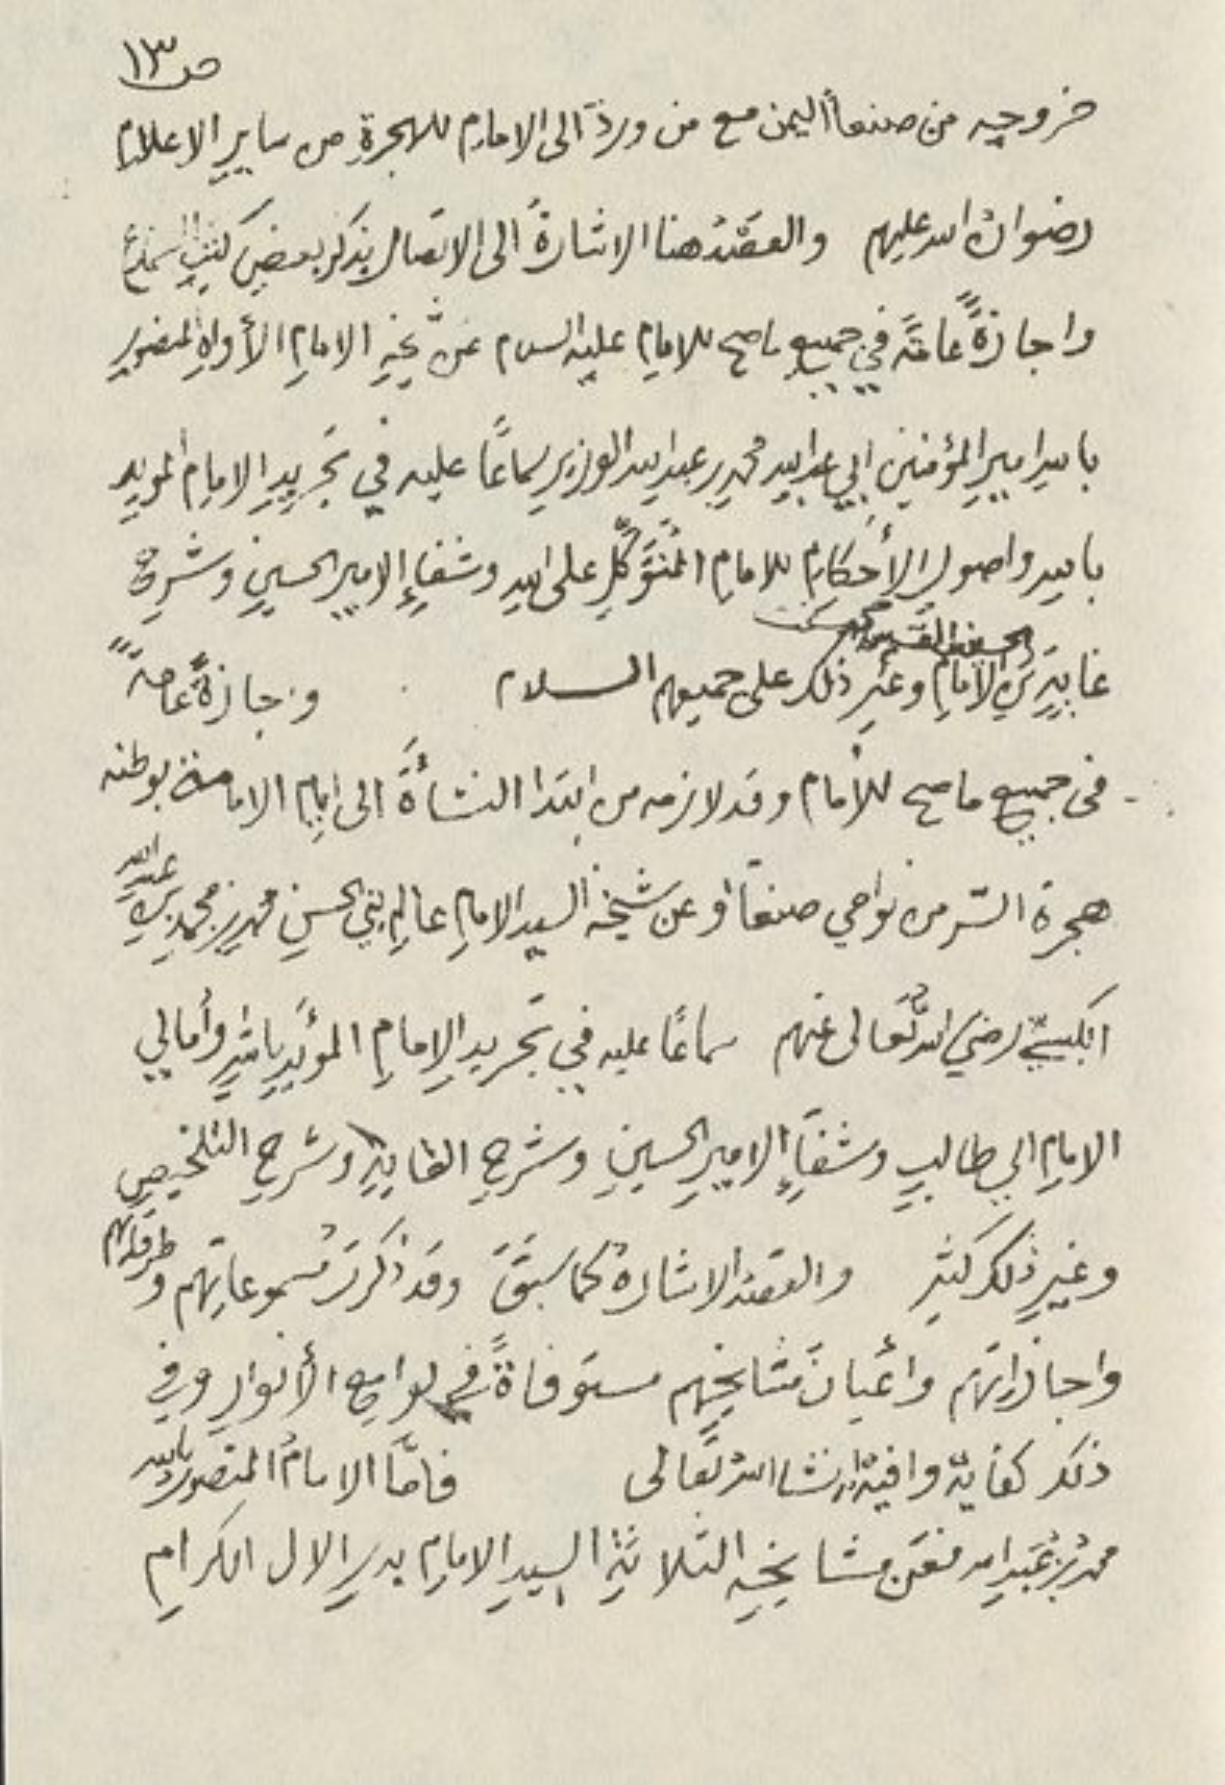 ص١٣
خروجه من صنعاأليمن مع من ورد الى الامام للهجرة من ساير الاعلام
رضوان الله عليهم والقصد هنا الاشارة الى الاتصال بذكر بعض كتب
واجازةً عامةً في جميع ما صح للامام عليه السلام عن شيخه الامام الأواه المنصور
بالله امير المؤمنين ابي عبدالله محمد بن عبدالله الوزير سماعًا عليه في تجريد الامام المويد
بالله واصول الأحكام للامام المُتَوَكِّلِ على الله وشفاء الامير الحسين وشرح
الحسين بن القسم بن محمد
غاية بن الامام وغير ذلك على جميعهم السلام واجازةً عامةً
فى جميع ما صح للأمام وقد لازمه من ابتدا النشأة الى ايام الامامة بوطنه
هجرة السر من نواحي صنعاء وعن شيخه السيد الامام عالم بني الحسن محمد بن محمد بن عبدالله
الكبسيّ رضي الله تعالى عنهم سماعًا عليه في تجريد الامام المؤيد بالله وأمالي
الامام ابي طالب وشفاء الامير الحسين وشرح الغاية وشرح التلخيص
وغير ذلك كثير والقصد الاشارة كما سبق وقد ذكرت مسموعاتهم وطرقهم
واجازاتهم وأعيان مشايخهم مستوفاةً في لوامع الأنوار وفي
ذلك كفاية وافية ان شا الله تعالى فامّا الامام المنصور بالله
محمد بن عبدالله فعن مشايخه الثلاثة السيد الامام بدر الال الكرام